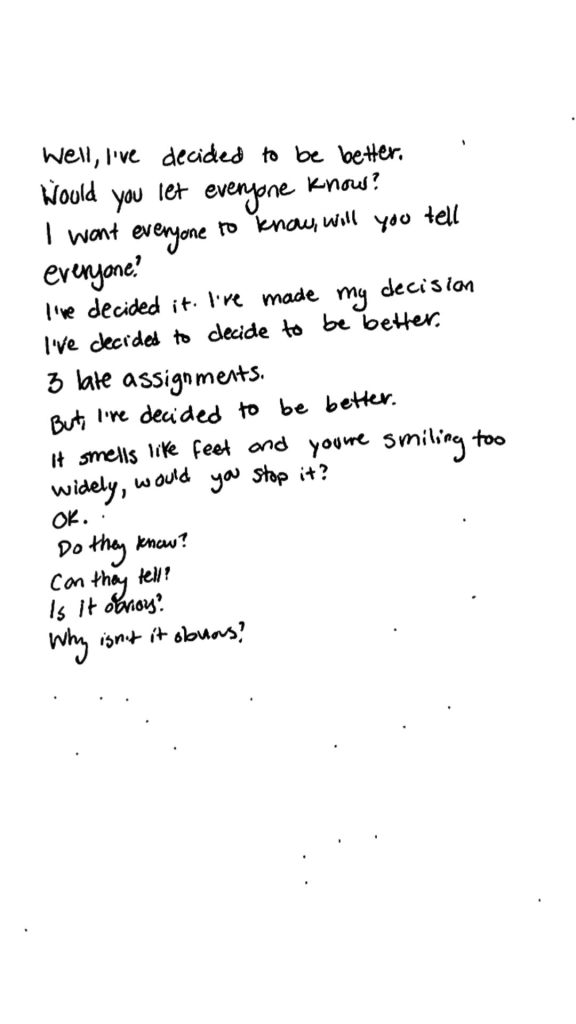 Well, I've decided to be better.
Would you let everyone know?
I want everyone to know, will you tell
everyone?
I've decided it. I've made my decision
I've decided to decide to be better.
3 late assignments.
But, I've decided to be better.
It smells like feet and you're smiling too
widely, would you stop it?
OK.
Do they know?
Can they tell?
Is it obvious?
Why isn't it obvious?